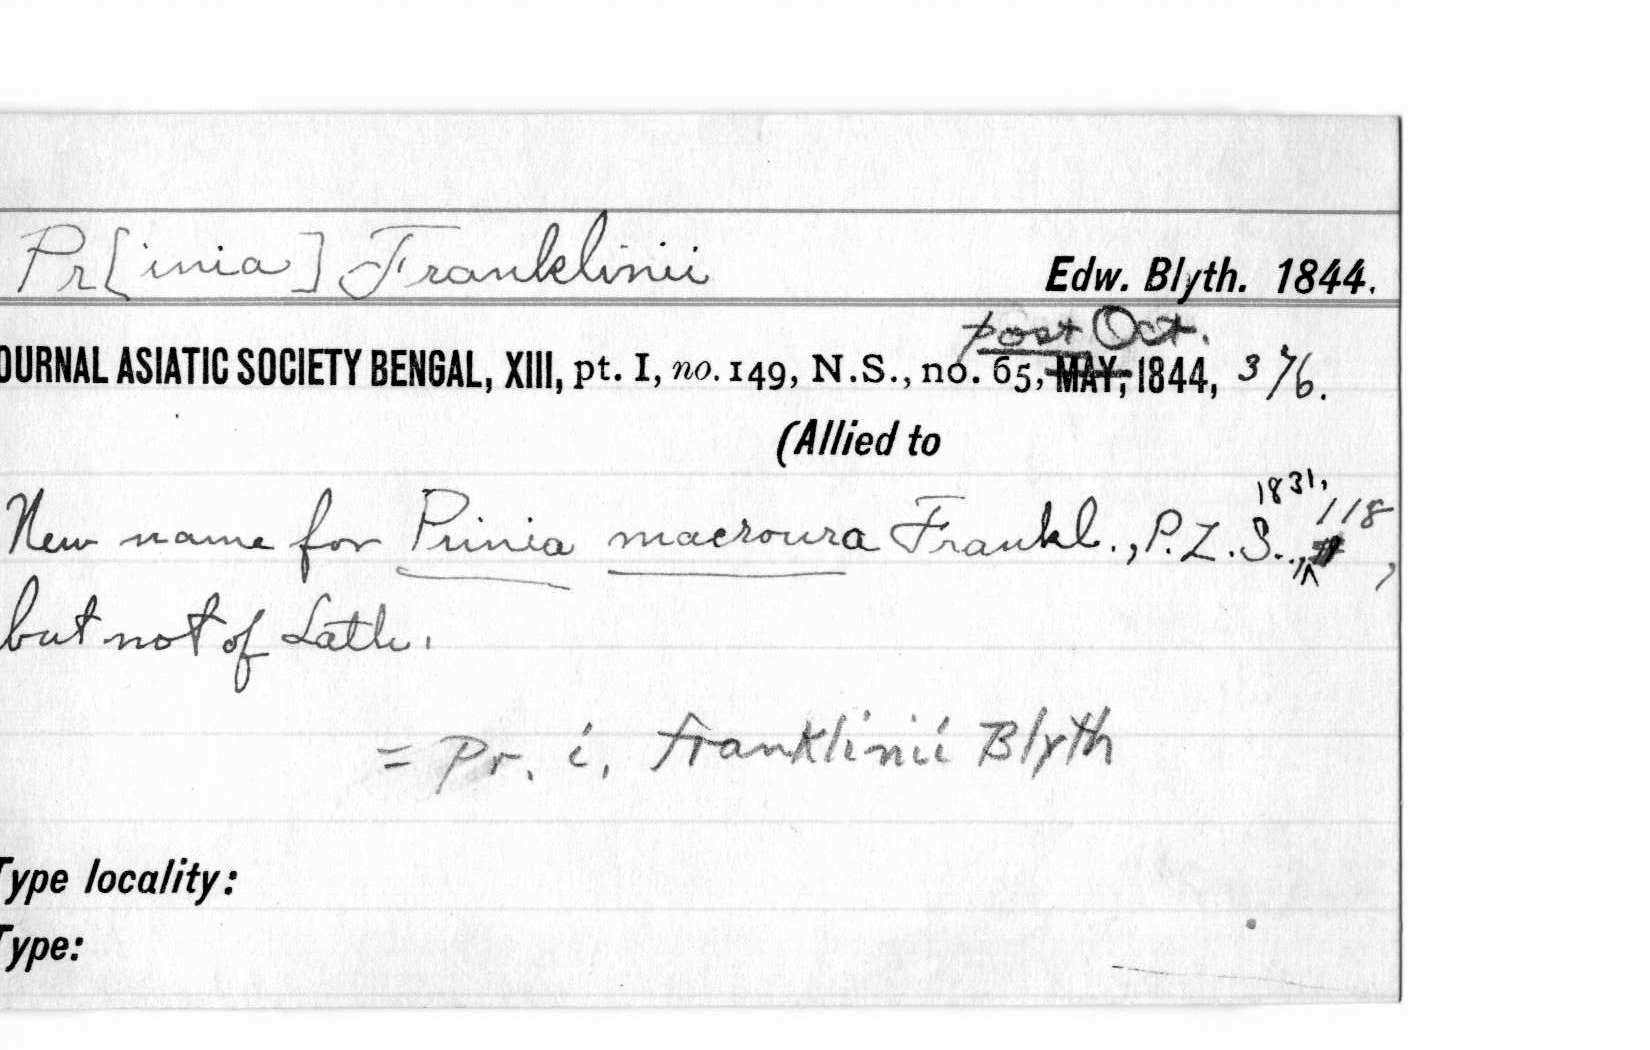 Pr[inia] Franklinii
Edw. Blyth. 1844.
post Oct.
OURNAL ASIATIC SOCIETY BENGAL, XIII, pt. I, no. 149, N.S., no. 65, MAY, 1844, 376.
(Allied to
New name for Prinia macroura Frankl., P.Z.S., 1831, 118,
but not of Lath.
= Pr. i. franklinii Blyth
Type locality:
Type: